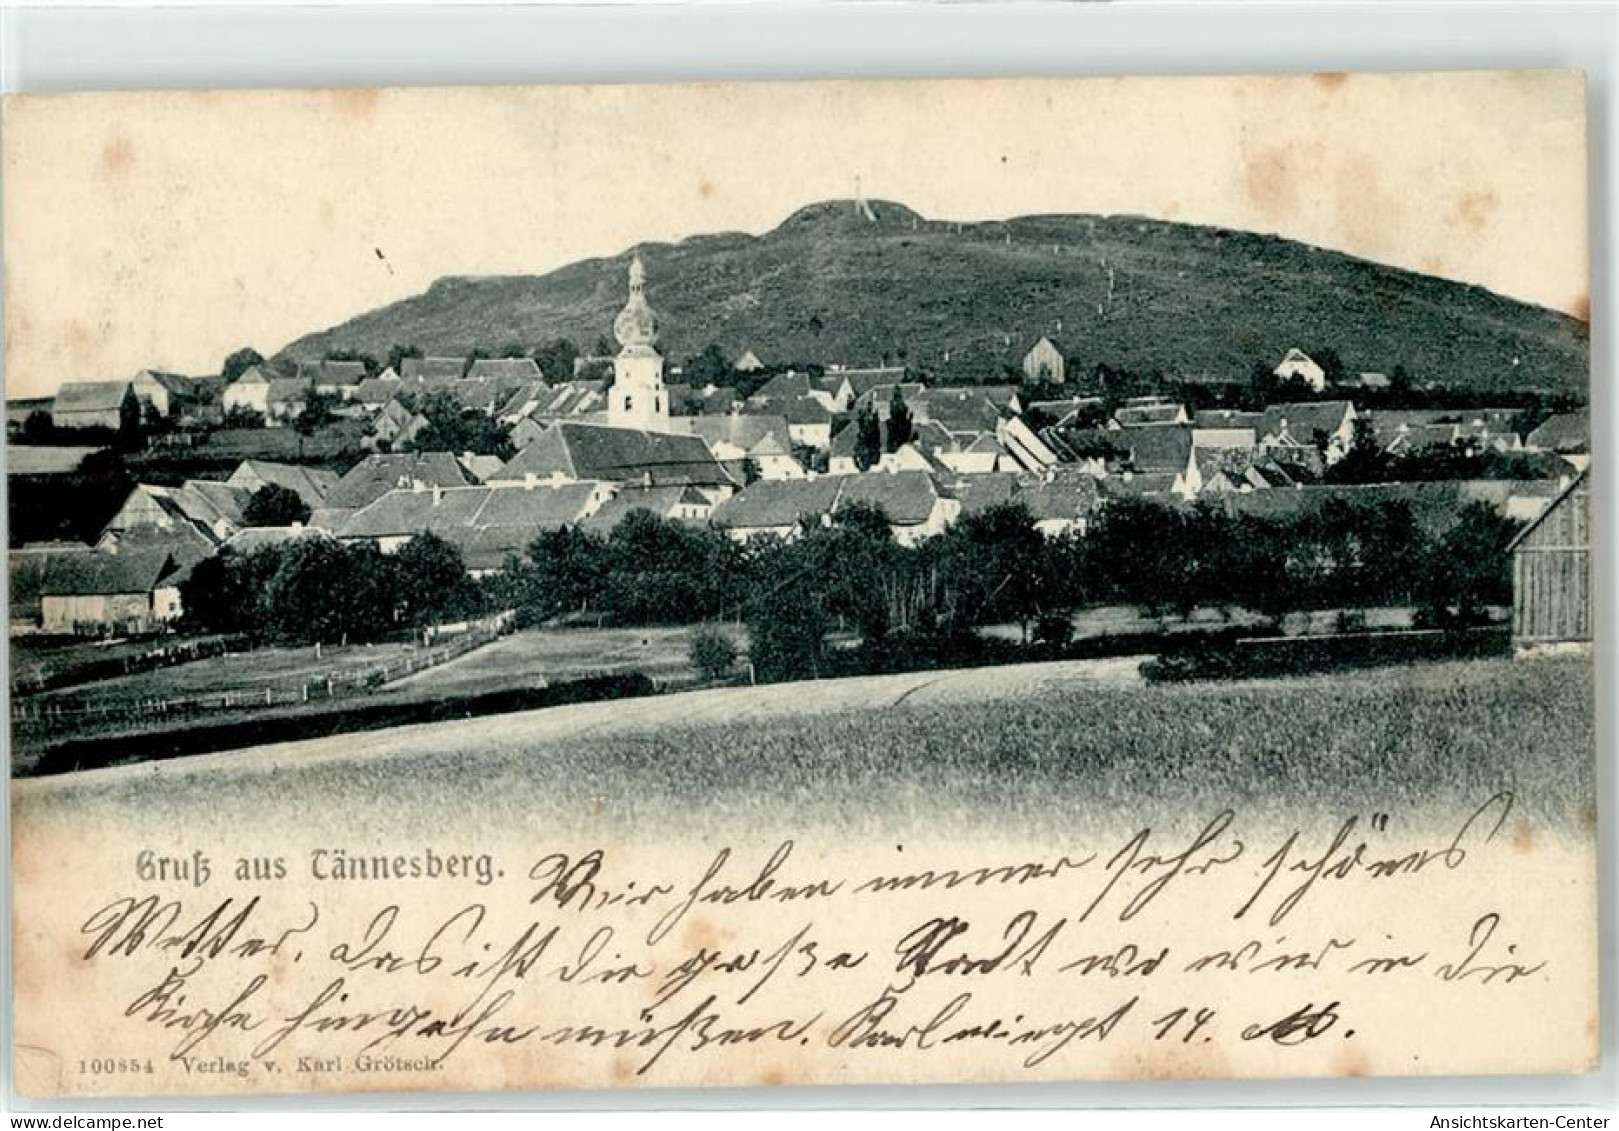 Gruß aus Tännesberg.
Wir haben immer sehr schönes
Wetter. Das ist die große Stadt wo wir in die
Kirche hingehn müßen. Karl wiegt 14. .
100854 Verlag v. Karl Grötsch.
Ansichtskarten-Center